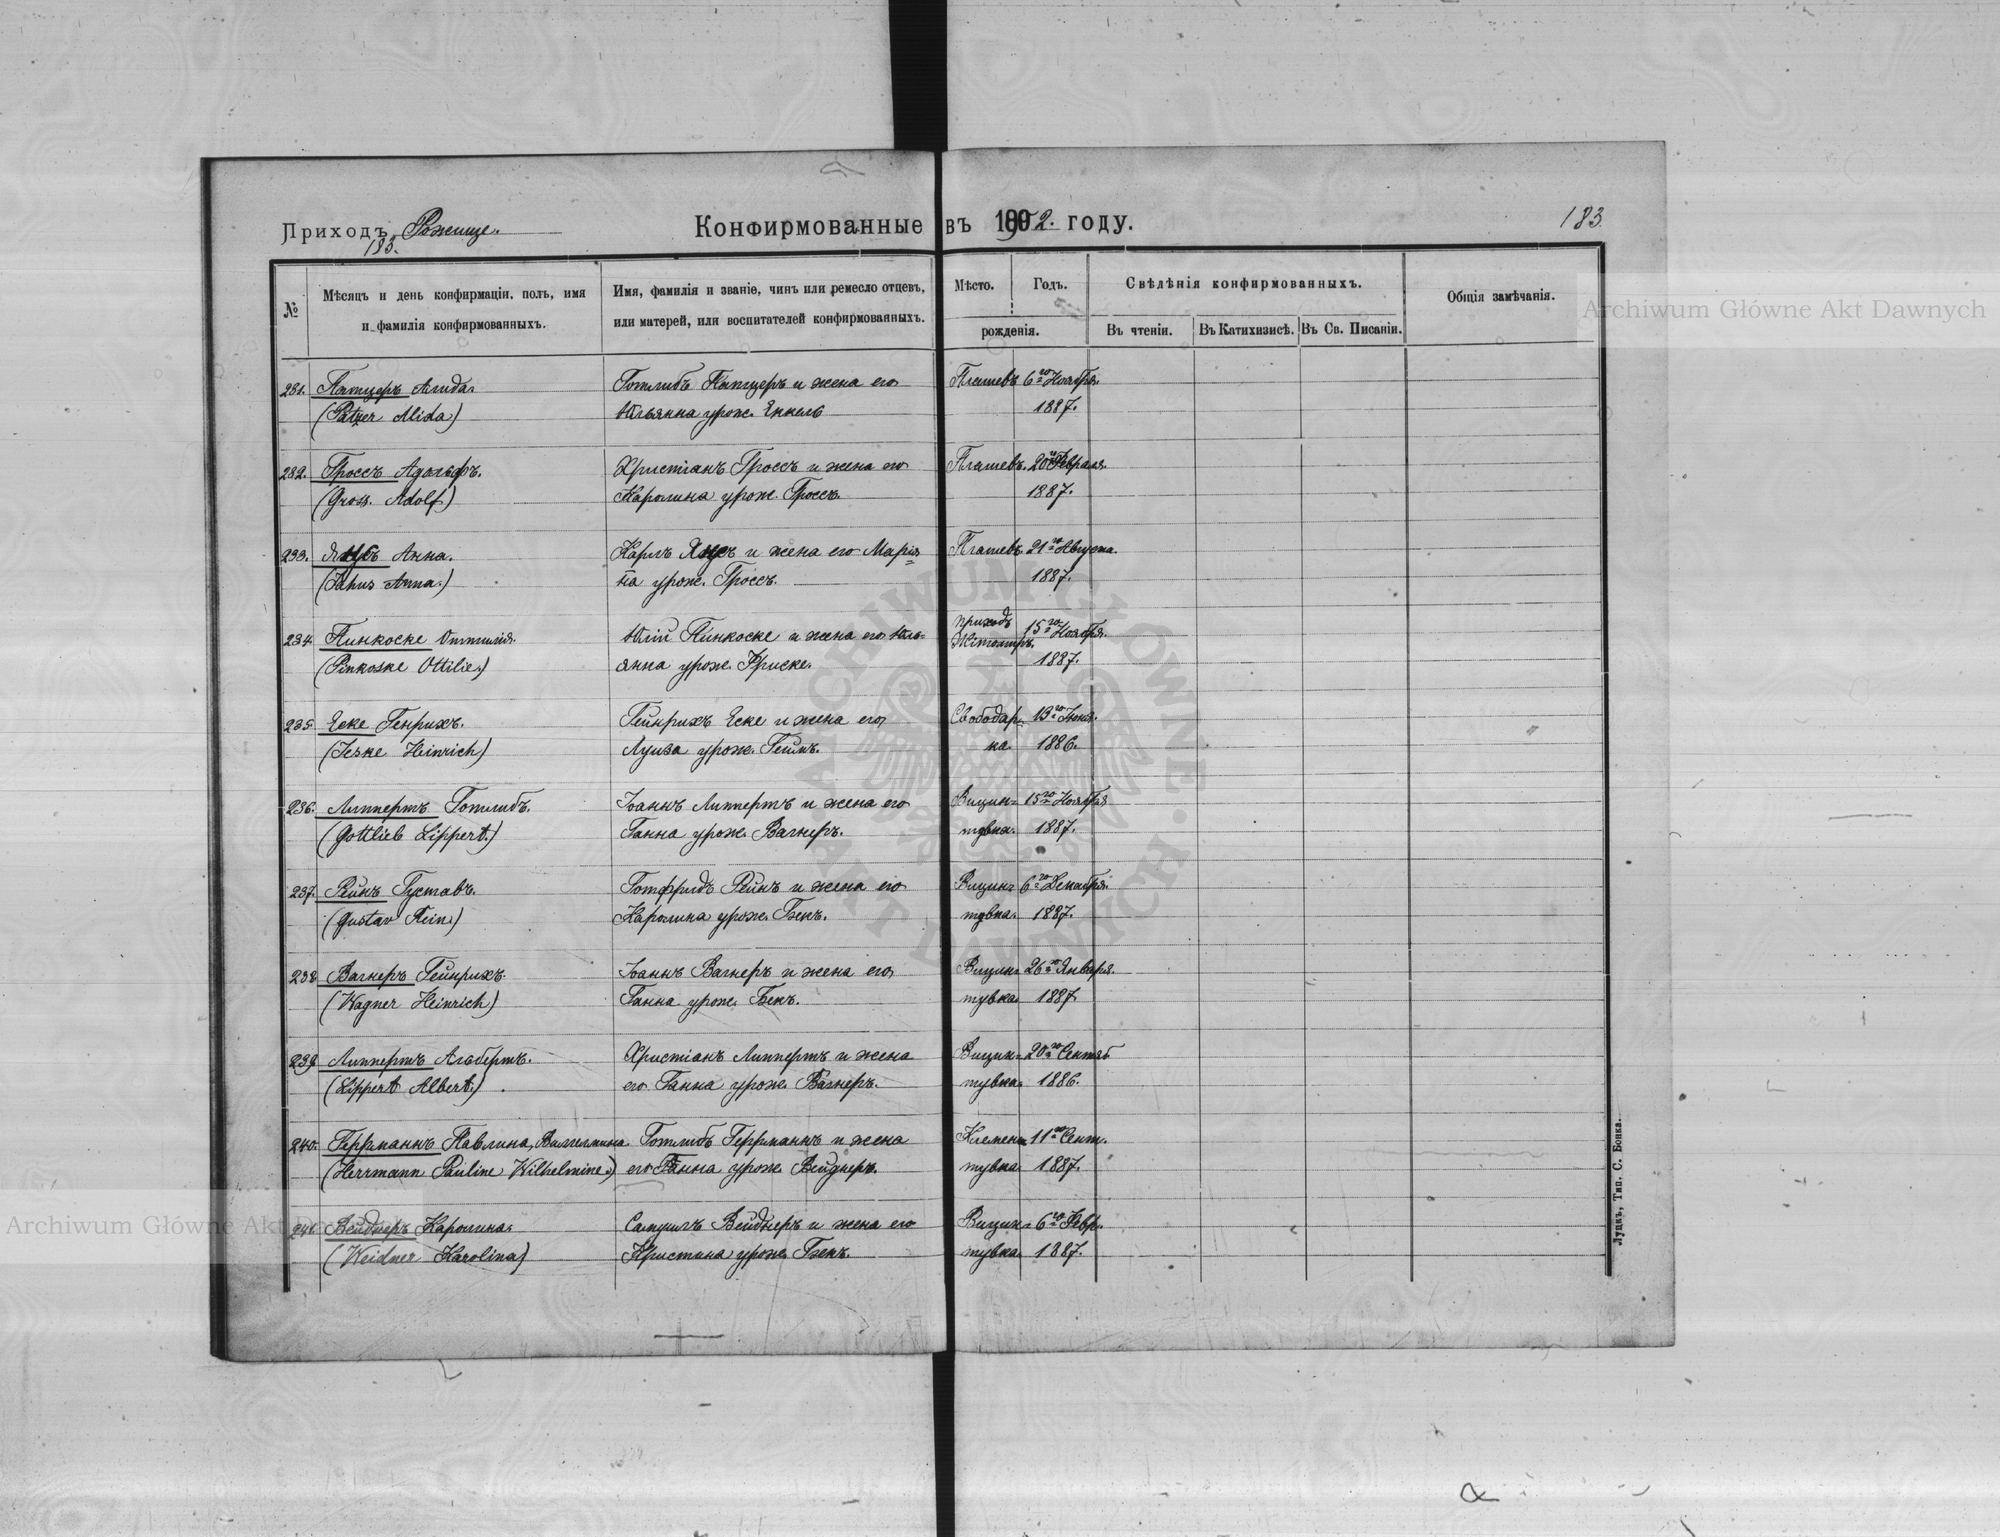 Приходъ Рожище.
183.
Конфирмованные въ 1902. году.
183
№
Мѣсяцъ и день конфирмаціи, полъ, имя
и фамилія конфирмованныхъ.
Имя, фамилія и званіе, чинъ или ремесло отцевъ,
или матерей, или воспитателей конфирмованныхъ.
Мѣсто.
Годъ.
рожденія.
Свѣдѣнія конфирмованныхъ.
Въ чтеніи.
Въ Катихизисѣ.
Въ Св. Писаніи.
Общія замѣчанія.
231. Патцеръ Алида. Готлибъ Патцеръ и жена его Пташевъ 6го Ноября.
(Patzer Alida) Юльянна урож. Енкель 1887.
232. Гроссъ Адольфъ. Христіанъ Гроссъ и жена его Пташевъ. 20го Февраля.
(Gross. Adolf) Каролина урож. Гроссъ. 1887.
233. Янусъ Анна. Карлъ Янусъ и жена его Маріа= Пташевъ 21го Августа.
(Janus Anna.) на урож. Гроссъ. 1887.
234. Пинкоске Оттилія. Юлій Пинкоске и жена его Юль- приходъ Житомиръ. 15го Ноября.
(Pinkoske Ottilie.) янна урож. Криске. 1887.
235. Еске Генрихъ. Гейнрихъ Еске и жена его Свободар- 13го Іюня.
(Jeske Heinrich) Луиза урож. Геймъ. ка. 1886.
236. Липпертъ Готлибъ. Іоаннъ Липпертъ и жена его Вицин= 15го Ноября
(Gottlieb Lippert.) Ганна урож. Вагнеръ. тувка. 1887.
237. Рейнъ Густавъ. Готфридъ Рейнъ и жена его Вицин= 6го Декабря.
(Gustav Rein.) Каролина урож. Бекъ. тувка. 1887.
238. Вагнеръ Гейнрихъ. Іоаннъ Вагнеръ и жена его Вицин= 26го Января.
(Wagner Heinrich) Ганна урож. Бекъ. тувка. 1887
239. Липпертъ Альбертъ. Христіанъ Липпертъ и жена Вицин= 20го Сентяб
(Lippert Albert.) его Ганна урож. Вагнеръ. тувка. 1886.
240. Геррманнъ Павлина, Вильгельмина Готлибъ Геррманнъ и жена Клемен= 11го Сент.
(Herrmann Pauline Wilhelmine.) его Ганна урож. Вейднеръ. тувка 1887.
241. Вейднеръ Каролина. Самуилъ Вейднеръ и жена его Вицин= 6го Февр.
(Weidner Karolina) Христина урож. Бекъ. тувка 1887.
Луцкъ, Тип. С. Бонка.
Archiwum Główne Akt Dawnych
Archiwum Główne Akt Dawnych
ARCHIWUM GŁÓWNE AKT DAWNYCH